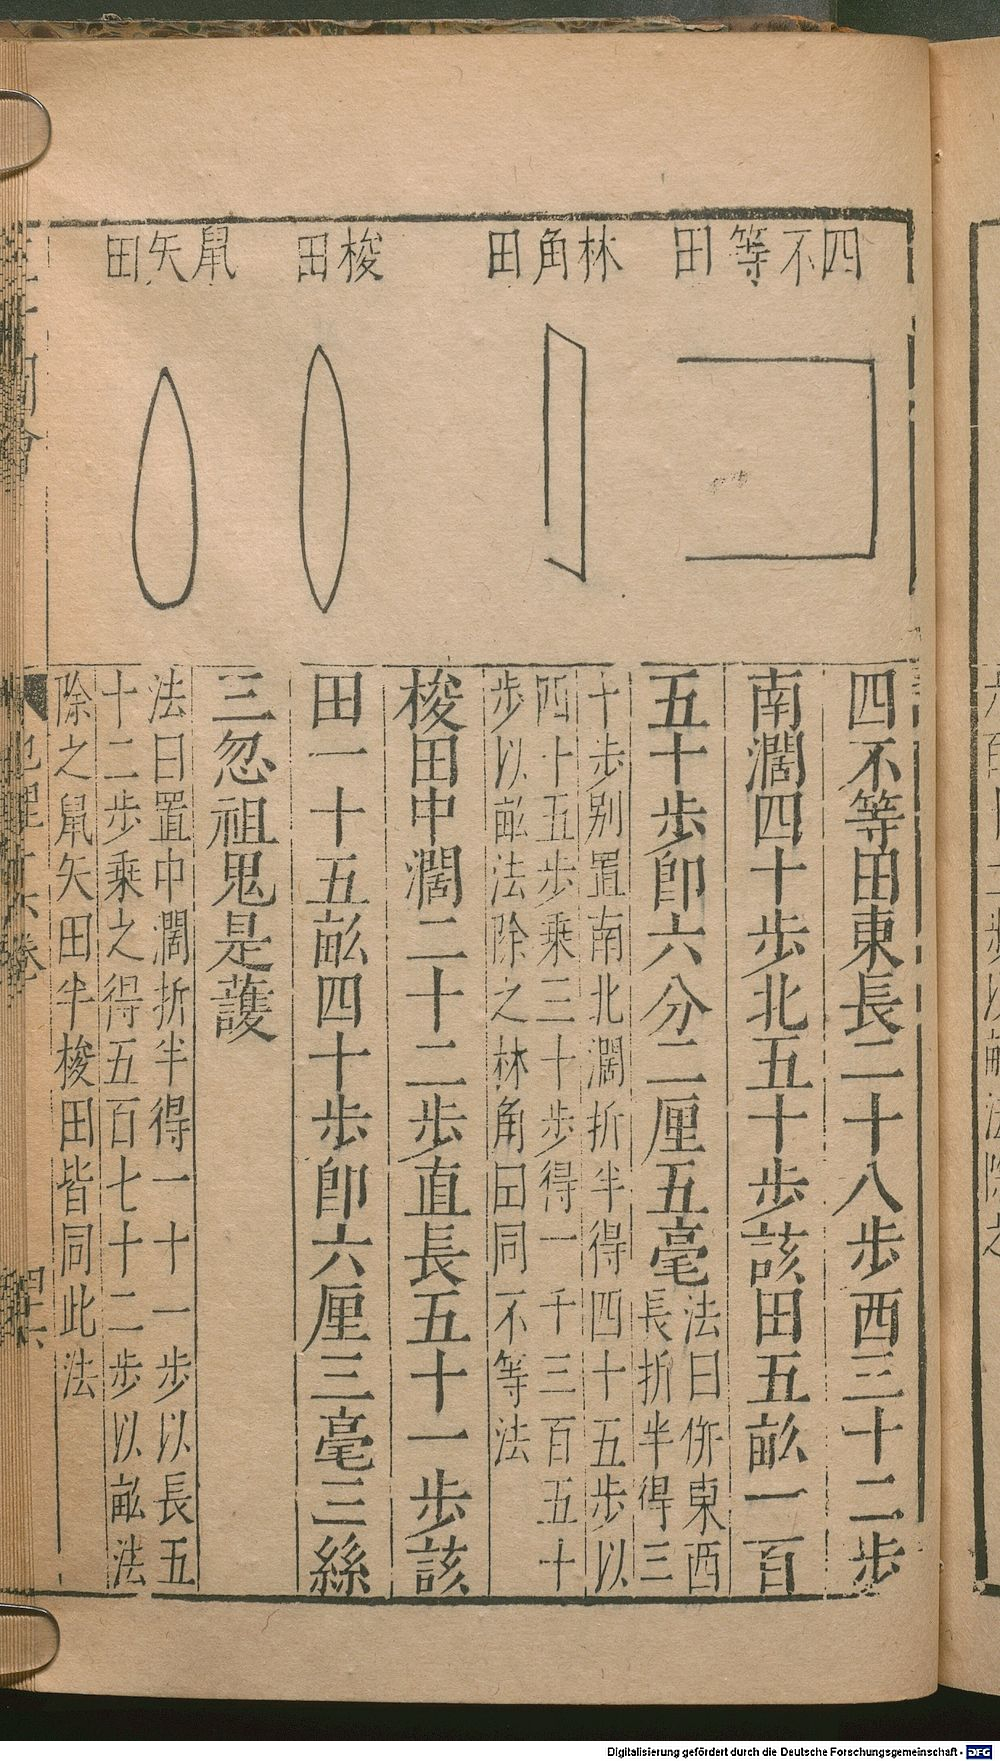 四不等田
林角田
梭田
鼠矢田
四不等田東長二十八步西三十二步
南濶四十步北五十步該田五畝一百
五十步卽六分二厘五毫
法曰倂東西
長折半得三
十步别置南北濶折半得四十五步以
四十五步乘三十步得一千三百五十
步以畝法除之林角田同不等法
梭田中濶二十二步直長五十一步該
田一十五畝四十步卽六厘三毫三絲
三忽祖
是護
法曰置中濶折半得一十一步以長五
十二步乘之得五百七十二步以畝法
除之鼠矢田半梭田皆同此法
Digitalisierung gefördert durch die Deutsche Forschungsgemeinschaft - DFG